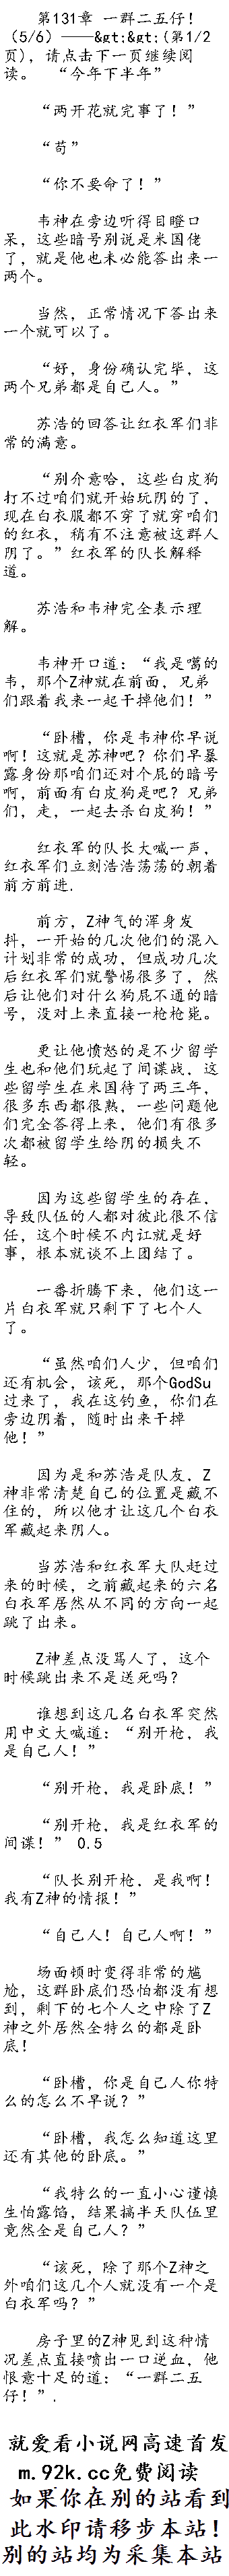 第131章 一群二五仔！
（5/6）——&gt;&gt;(第1/2
页)，请点击下一页继续阅
读。 “今年下半年”
“两开花就完事了！”
“苟”
“你不要命了！”
韦神在旁边听得目瞪口
呆，这些暗号别说是米国佬
了，就是他也未必能答出来一
两个。
当然，正常情况下答出来
一个就可以了。
“好，身份确认完毕，这
两个兄弟都是自己人。”
苏浩的回答让红衣军们非
常的满意。
“别介意哈，这些白皮狗
打不过咱们就开始玩阴的了，
现在白衣服都不穿了就穿咱们
的红衣，稍有不注意被这群人
阴了。”红衣军的队长解释
道。
苏浩和韦神完全表示理
解。
韦神开口道：“我是嘴的
韦，那个Z神就在前面，兄弟
们跟着我来一起干掉他们！”
“卧槽，你是韦神你早说
啊！这就是苏神吧？你们早暴
露身份那咱们还对个屁的暗号
啊，前面有白皮狗是吧？兄弟
们，走，一起去杀白皮狗！”
红衣军的队长大喊一声，
红衣军们立刻浩浩荡荡的朝着
前方前进.
前方，Z神气的浑身发
抖，一开始的几次他们的混入
计划非常的成功，但成功几次
后红衣军们就警惕很多了，然
后让他们对什么狗屁不通的暗
号，没对上来直接一枪枪毙。
更让他愤怒的是不少留学
生也和他们玩起了间谍战，这
些留学生在米国待了两三年，
很多东西都很熟，一些问题他
们完全答得上来，他们有很多
次都被留学生给阴的损失不
轻。
因为这些留学生的存在，
导致队伍的人都对彼此很不信
任，这个时候不内讧就是好
事，根本就谈不上团结了。
一番折腾下来，他们这一
片白衣军就只剩下了七个人
了。
“虽然咱们人少，但咱们
还有机会，该死，那个GodSu
过来了，我在这钓鱼，你们在
旁边阴着，随时出来干掉
他！”
因为是和苏浩是队友，Z
神非常清楚自己的位置是藏不
住的，所以他才让这几个白衣
军藏起来阴人。
当苏浩和红衣军大队赶过
来的时候，之前藏起来的六名
白衣军居然从不同的方向一起
跳了出来。
Z神差点没骂人了，这个
时候跳出来不是送死吗？
谁想到这几名白衣军突然
用中文大喊道：“别开枪，我
是自己人！”
“别开枪，我是卧底！”
“别开枪，我是红衣军的
间谍！” 0.5
“队长别开枪，是我啊！
我有Z神的情报！”
“自己人！自己人啊！”
场面顿时变得非常的尴
尬，这群卧底们恐怕都没有想
到，剩下的七个人之中除了Z
神之外居然全特么的都是卧
底！
“卧槽，你是自己人你特
么的怎么不早说？”
“卧槽，我怎么知道这里
还有其他的卧底。”
“我特么的一直小心谨慎
生怕露馅，结果搞半天队伍里
竟然全是自己人？”
“该死，除了那个Z神之
外咱们这几个人就没有一个是
白衣军吗？”
房子里的Z神见到这种情
况差点直接喷出一口逆血，他
恨意十足的道：“一群二五
仔！”.
就爱看小说网高速首发
m.92k.cc免费阅读
如果你在别的站看到
此水印请移步本站！
别的站均为采集本站